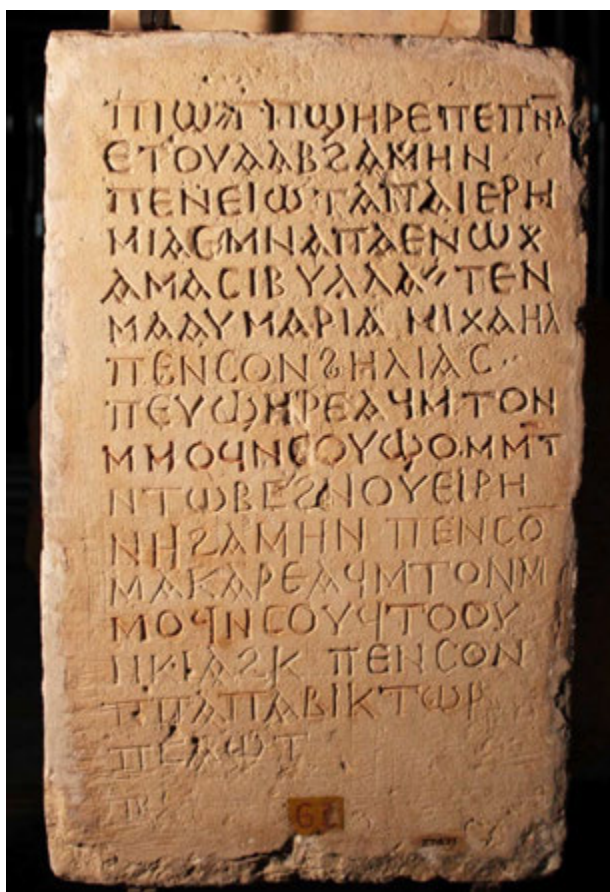 ⲠⲒⲰⲦ ⲠϢⲎⲢⲈ ⲠⲈⲠⲚ̅Ⲁ̅
ⲈⲦⲞⲨⲀⲀⲂ ϨⲀⲘⲎⲚ
ⲠⲈⲚⲈⲒⲰⲦ ⲀⲠⲀ ⲒⲈⲢⲎ
ⲘⲒⲀⲤ ⲘⲚ ⲀⲠⲀ ⲈⲚⲰⲬ
ⲀⲘⲀ ⲤⲒⲂⲨⲖⲖⲀ〃 ⲦⲈⲚ
ⲘⲀⲀⲨ ⲘⲀⲢⲒⲀ ⲘⲒⲬⲀⲎⲖ
ⲠⲈⲚⲤⲞⲚ ϨⲎⲖⲒⲀⲤ··
ⲠⲈⲨϢⲎⲢⲈ ⲀϤⲘⲦⲞⲚ
ⲘⲘⲞϤ ⲚⲤⲞⲨϢⲞⲘⲘⲦ̅
ⲚⲦⲰⲂⲈ ϨⲚⲞⲨⲈⲒⲢⲎ
ⲚⲎ ϨⲀⲘⲎⲚ ⲠⲈⲚⲤⲞ̅
ⲘⲀⲔⲀⲢⲈ ⲀϤⲘⲦⲞⲚⲘ
ⲘⲞϤ ⲚⲤⲞⲨϤⲦⲞⲞⲨ
ⲠⲈⲚⲤⲞⲚ
ⲠⲠⲀⲠⲀ ⲂⲒⲔⲦⲰⲢ
61